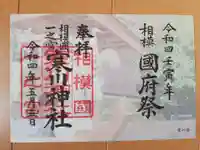 令和四壬寅年
相模 國府祭
奉拝
相模國
一之宮
寒川神社
令和四年五月三日
相模國